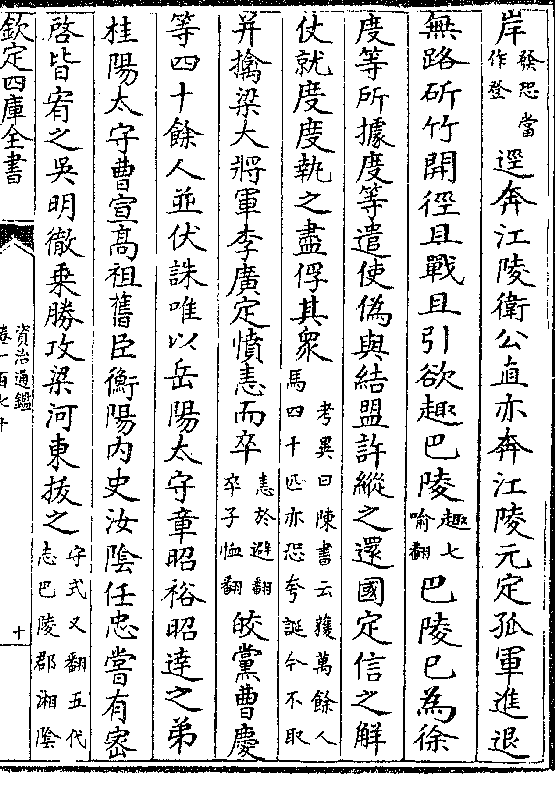 岸發恐當作登逕奔江陵衛公直亦奔江陵元定孤軍進退
無路斫竹開徑且戰且引欲趣巴陵趣七喻翻巴陵已為徐
度等所據度等遣使偽與結盟許縱之還國定信之解
仗就度度執之盡俘其衆考異曰陳書云獲萬餘人馬四十匹亦恐夸誕今不取
并擒梁大將軍李廣定憤恚而卒恚於避翻卒子恤翻皎黨曹慶
等四十餘人並伏誅唯以岳陽太守章昭裕昭達之弟
桂陽太守曹宣高祖舊臣衡陽内史汝陰任忠嘗有密
啓皆宥之吳明徹乘勝攻梁河東拔之守式又翻五代志巴陵郡湘陰
欽定四庫全書
資治通鑑
卷一百七十
十